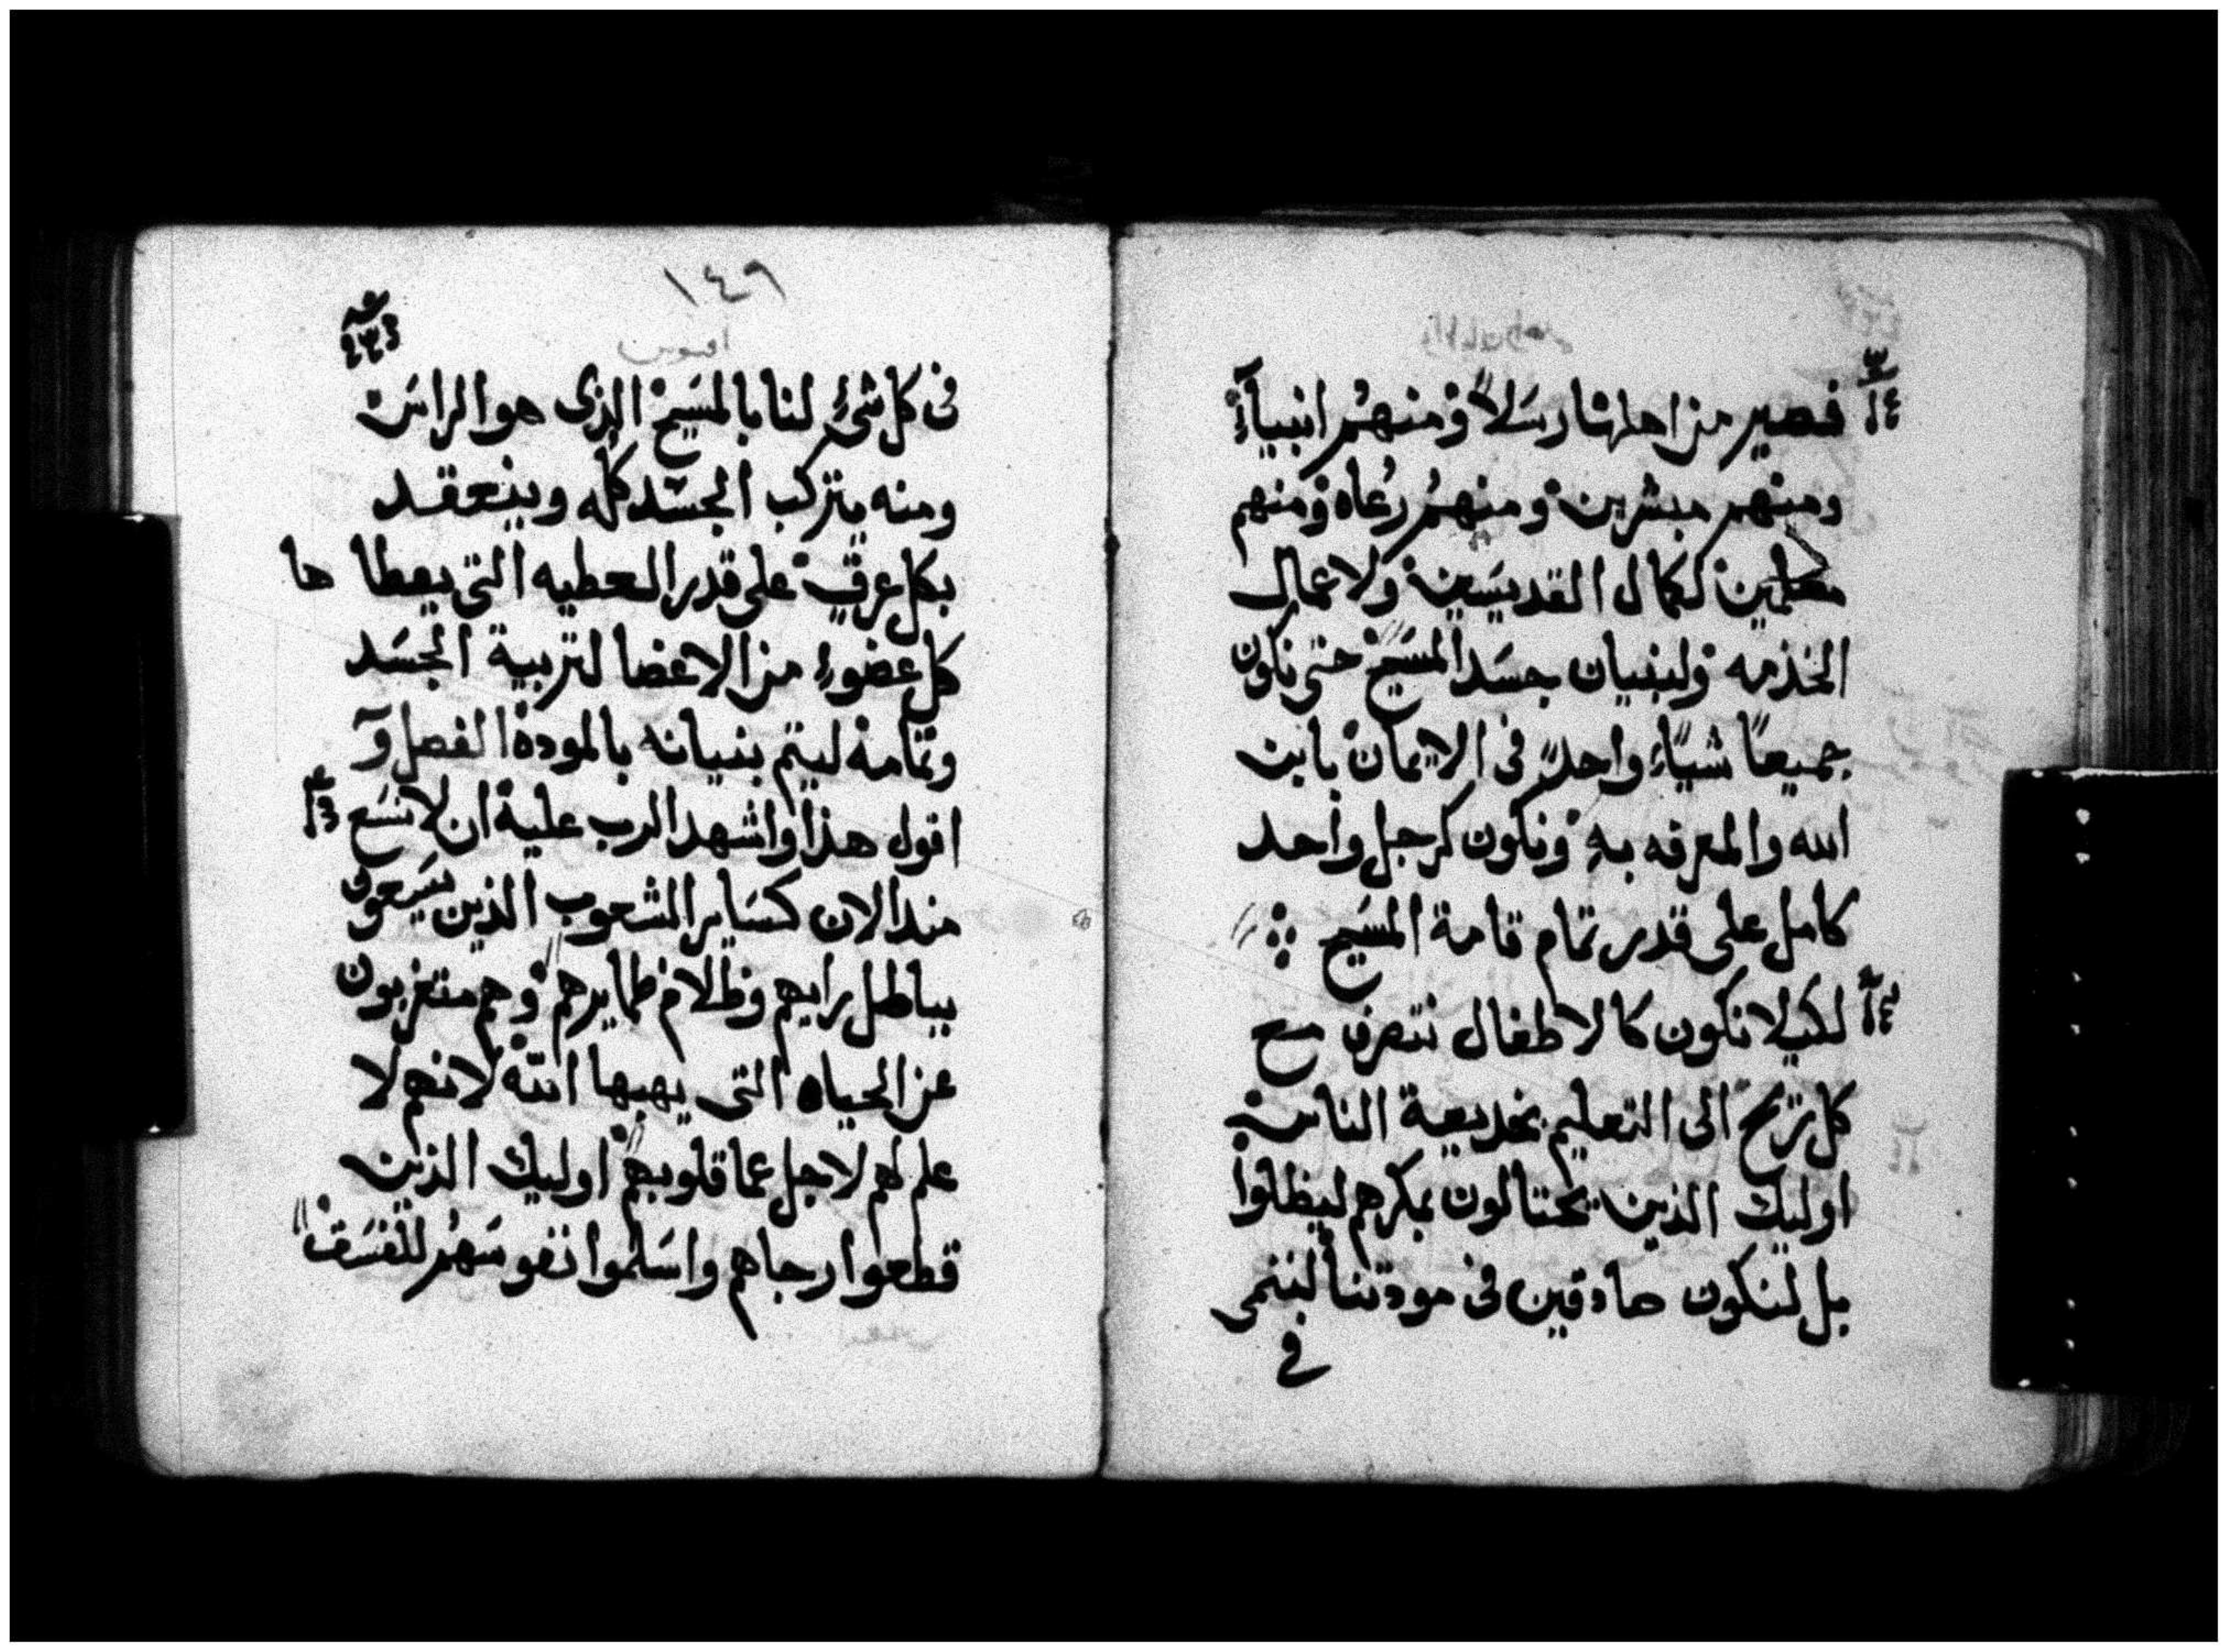 فصير من اهلها رسلاً ومنهم انبياءً
ومنهم مبشرين ومنهم رعاه ومنهم
معلمين لكمال القديسين ولاعمال
الخدمه ولبنيان جسد المسيح حتى نكون
جميعاً شياً واحداً فى الايمان بابن
الله والمعرفه به ونكون كرجل واحد
كامل على قدر تمام قامة المسيح
لكيلا نكون كالاطفال نتصرف مع
كل ريح الى التعليم بخديعة الناس
اوليك الذين يحتالون بمكرهم ليظلوا
بل لنكون صادقين فى مودتنا لننمى
في
١٤٩
افسس
فى كل شىء لنا بالمسيح الذى هو الراس
ومنه يتركب الجسد كله وينعقد
بكل عرق على قدر العطيه التى يعطا ها
كل عضو من الاعضا لتربية الجسد
وتمامه ليتم بنيانه بالمودة الفصل
اقول هذا واشهد الرب عليه ان لا نسع
مند الان كساير الشعوب الذين يسعون
بباطل رايهم وظلام ظمايرهم وهم متغربون
عن الحياه التى يهبها الله لانهم لا
علم لهم لاجل عما قلوبهم اوليك الذين
قطعوا رجاهم واسلموا نفوسهم للفسق